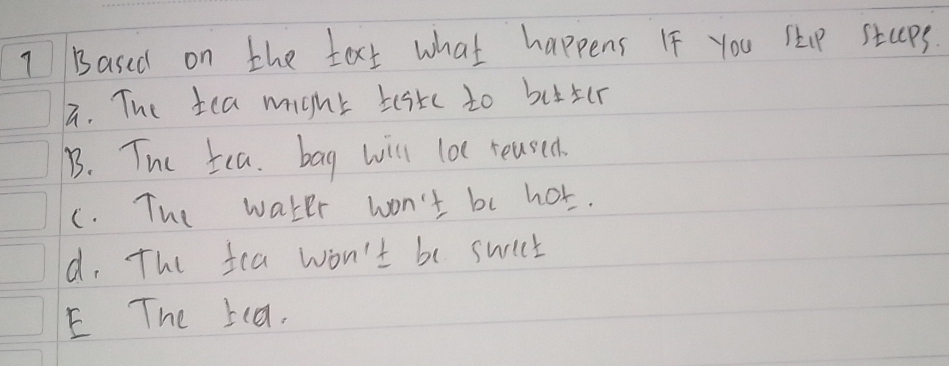 1 Based on the text what happens IF you skip steeps.
a. The tea might taste to bitter
B. The tea. bag will be reused.
c. The water won't be hot.
d. The tea won't be sweet
E The tea.